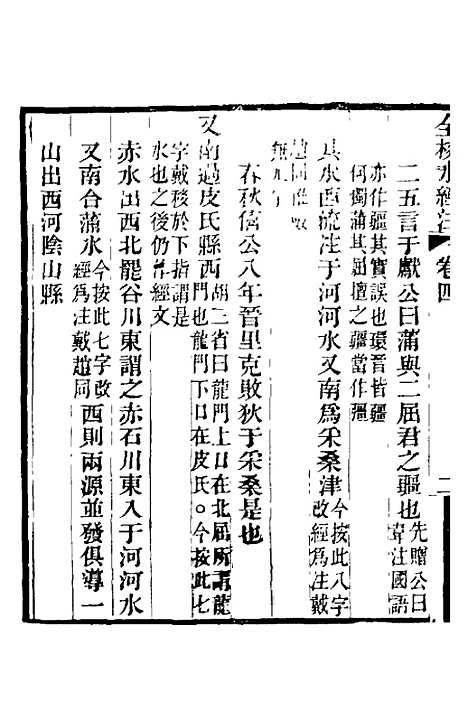 全校水經注 卷四 二
二五言于獻公曰蒲與二屈君之疆也先贈公曰韋注國語
亦作疆其實誤也環晉皆疆何獨蒲其屈壇之疆當作疆
其水西流注于河河水又南爲采桑津今按此八字改經爲注戴
春秋僖公八年晉里克敗狄于采桑是也
又南過皮氏縣西胡三省曰龍門上口在北屈所謂龍門也龍門下口在皮氏。今按此七
字戴移於下指謂是水也之後仍作經文
赤水出西北罷谷川東謂之赤石川東入于河河水
又南合蒲水今按此七字改經爲注戴趙同西則兩源並發俱導一
山出西河陰山縣